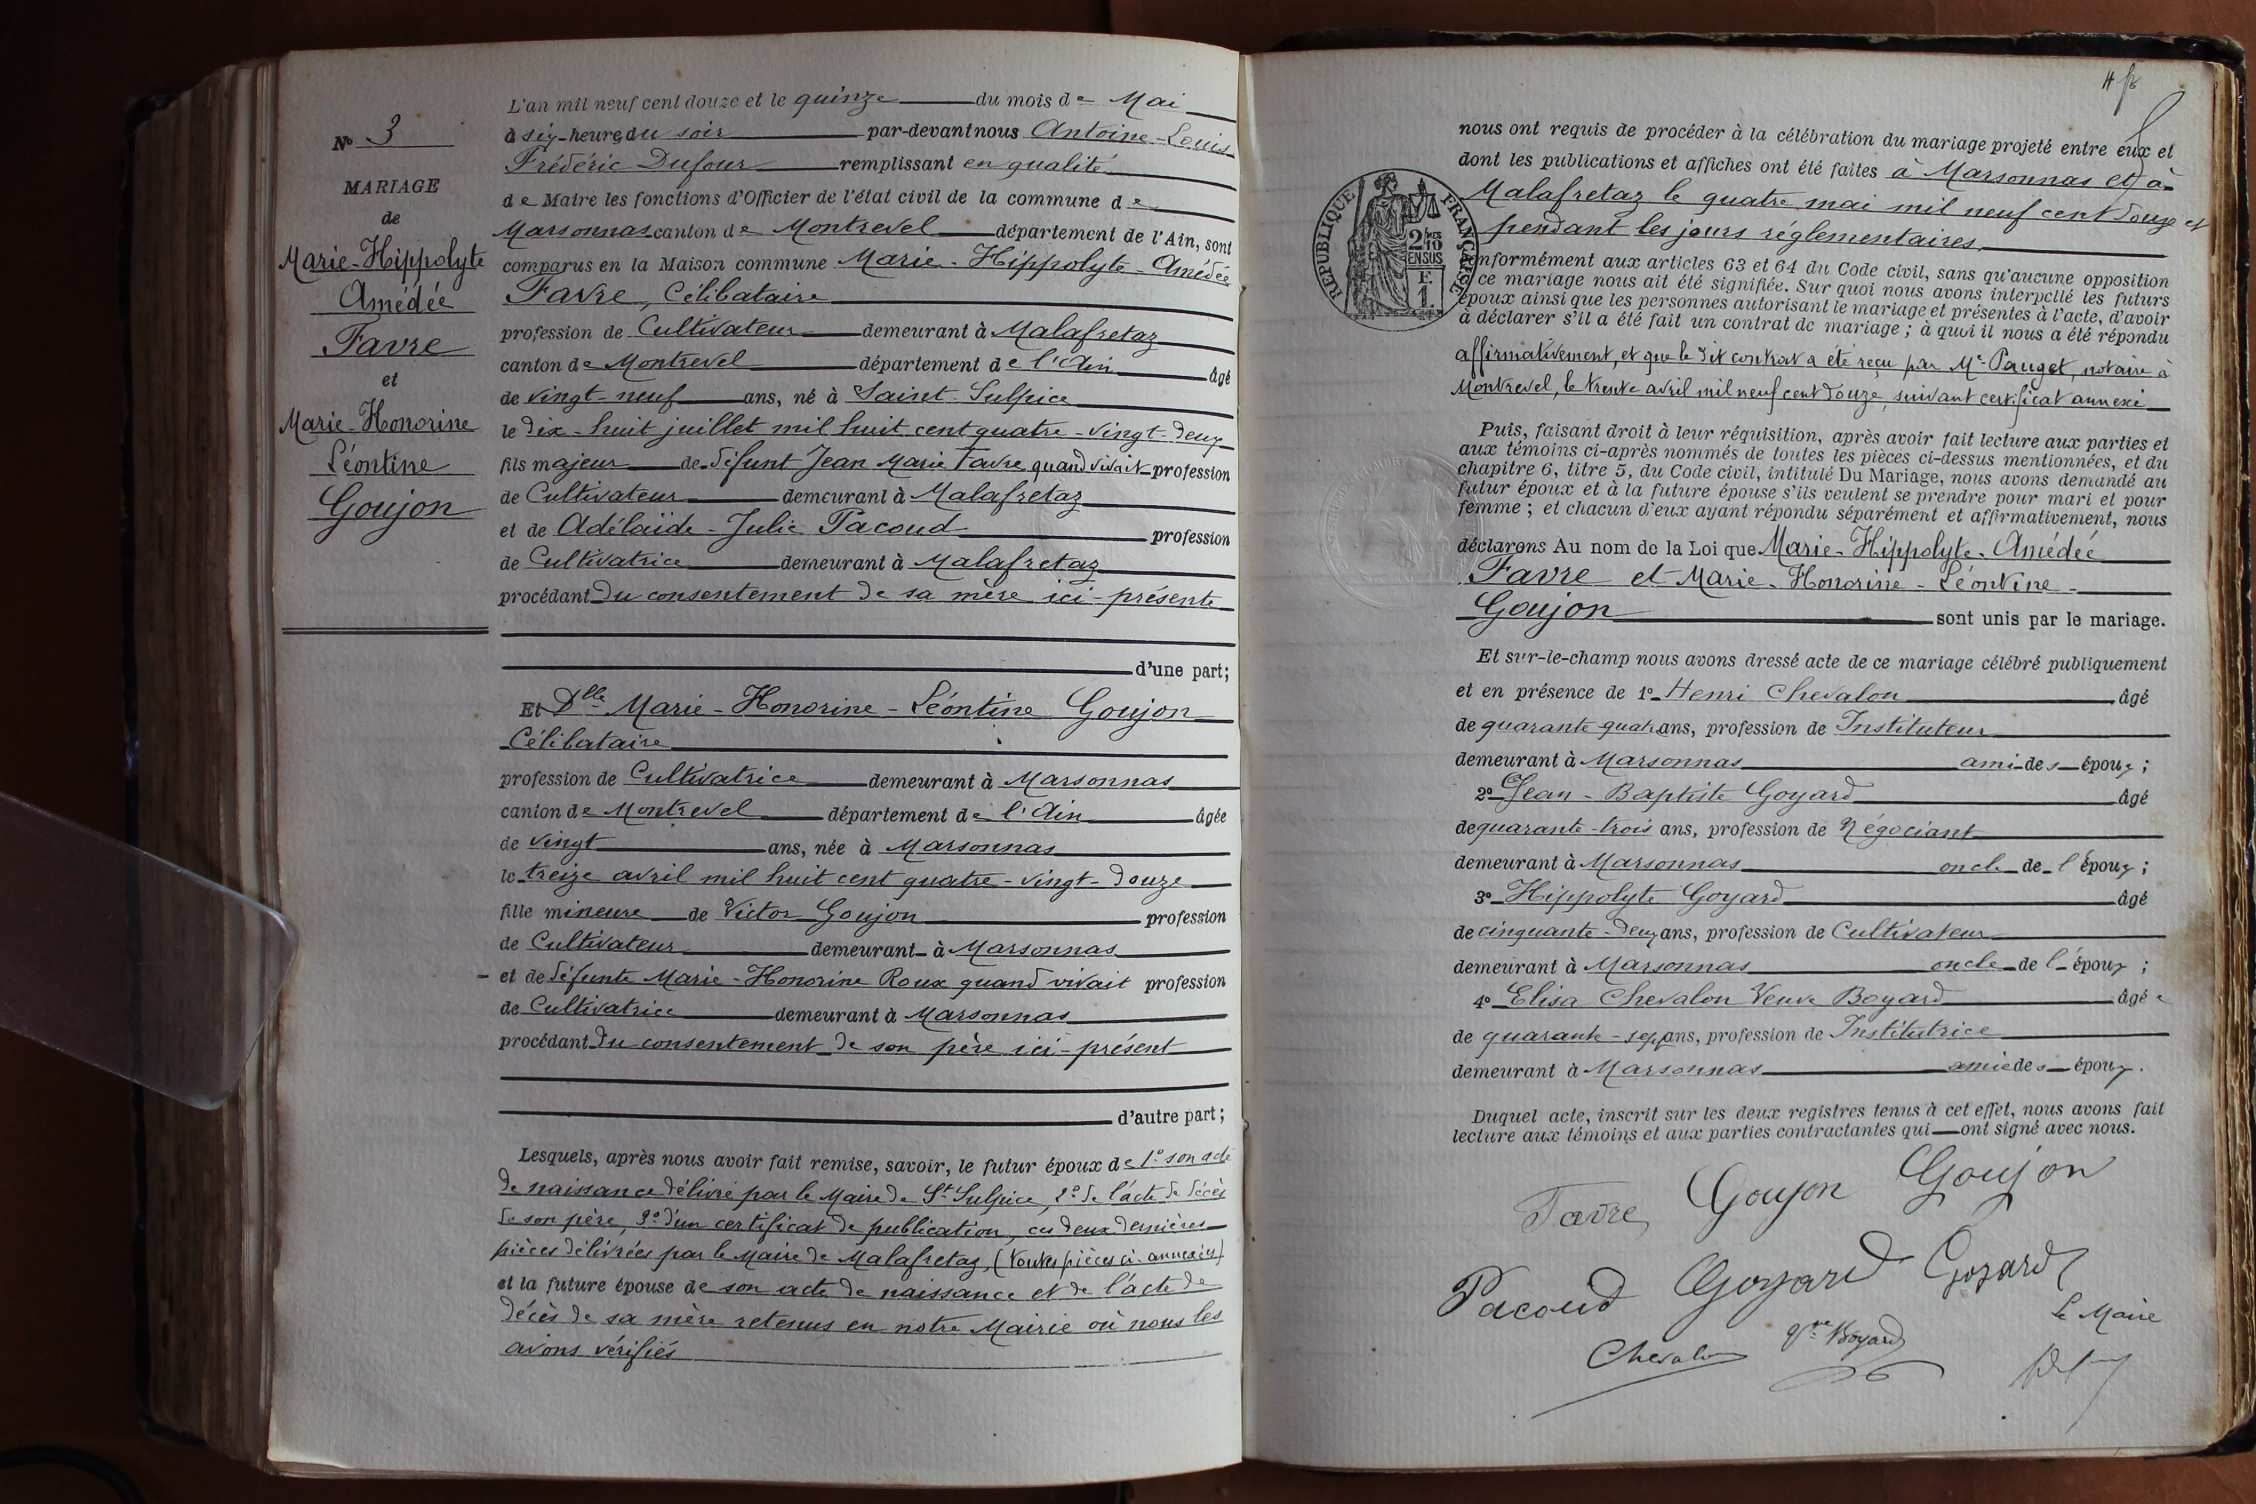 Nº 3
MARIAGE
de
Marie-Hippolyte
Amédée
Favre
et
Marie-Honorine
Léontine
Goujon
L'an mil neuf cent douze et le quinze du mois de Mai
à six heures du soir par-devant nous Antoine-Louis
Frédéric Dufour remplissant en qualité
de Maire les fonctions d'Officier de l'état civil de la commune de
Marsonnas canton de Montrevel département de l'Ain, sont
comparus en la Maison commune Marie-Hippolyte-Amédée
Favre, Célibataire
profession de Cultivateur demeurant à Malafretaz
canton de Montrevel département de l'Ain âgé
de vingt-neuf ans, né à Saint-Sulpice
le dix-huit juillet mil huit cent quatre-vingt-deux
fils majeur de défunt Jean Marie Favre quand vivait profession
de Cultivateur demeurant à Malafretaz
et de Adélaïde-Julie Pacoud profession
de Cultivatrice demeurant à Malafretaz
procédant du consentement de sa mère ici-présente
d'une part;
Et Dlle Marie-Honorine-Léontine Goujon
Célibataire
profession de Cultivatrice demeurant à Marsonnas
canton de Montrevel département de l'Ain âgée
de vingt ans, née à Marsonnas
le treize avril mil huit cent quatre-vingt-douze
fille mineure de Victor Goujon profession
de Cultivateur demeurant à Marsonnas
et de défunte Marie-Honorine Roux quand vivait profession
de Cultivatrice demeurant à Marsonnas
procédant du consentement de son père ici-présent
d'autre part;
Lesquels, après nous avoir fait remise, savoir, le futur époux de 1º son acte
de naissance délivré par le Maire de St Sulpice, 2º de l'acte de décès
de son père, 3º d'un certificat de publication, ces deux dernières
pièces délivrées par le Maire de Malafretaz, (toutes pièces ci-annexées)
et la future épouse de son acte de naissance et de l'acte de
décès de sa mère retenus en notre Mairie où nous les
avons vérifiés
nous ont requis de procéder à la célébration du mariage projeté entre eux et
dont les publications et affiches ont été faites à Marsonnas et à
Malafretaz le quatre mai mil neuf cent douze et
pendant les jours réglementaires
conformément aux articles 63 et 64 du Code civil, sans qu'aucune opposition
à ce mariage nous ait été signifiée. Sur quoi nous avons interpellé les futurs
époux ainsi que les personnes autorisant le mariage et présentes à l'acte, d'avoir
à déclarer s'il a été fait un contrat de mariage; à quoi il nous a été répondu
affirmativement, et que le dit contrat a été reçu par Me Pauget, notaire à
Montrevel, le trente avril mil neuf cent douze, suivant certificat annexé
RÉPUBLIQUE FRANÇAISE
2/10
EN SUS
E.
1.
Puis, faisant droit à leur réquisition, après avoir fait lecture aux parties et
aux témoins ci-après nommés de toutes les pièces ci-dessus mentionnées, et du
chapitre 6, titre 5, du Code civil, intitulé Du Mariage, nous avons demandé au
futur époux et à la future épouse s'ils veulent se prendre pour mari et pour
femme; et chacun d'eux ayant répondu séparément et affirmativement, nous
déclarons Au nom de la Loi que Marie-Hippolyte-Amédée
Favre et Marie-Honorine-Léontine
Goujon sont unis par le mariage.
Et sur-le-champ nous avons dressé acte de ce mariage célébré publiquement
et en présence de 1º Henri Chevalon âgé
de quarante-quatre ans, profession de Instituteur
demeurant à Marsonnas ami des époux;
2º Jean-Baptiste Goyard âgé
de quarante-trois ans, profession de Négociant
demeurant à Marsonnas oncle de l'époux;
3º Hippolyte Goyard âgé
de cinquante-deux ans, profession de Cultivateur
demeurant à Marsonnas oncle de l'époux;
4º Elisa Chevalon Veuve Boyard âgée
de quarante-sept ans, profession de Institutrice
demeurant à Marsonnas amie des époux.
Duquel acte, inscrit sur les deux registres tenus à cet effet, nous avons fait
lecture aux témoins et aux parties contractantes qui ont signé avec nous.
Favre Goujon Goujon
Pacoud Goyard Goyard
Chevalon Vve Boyard
Le Maire